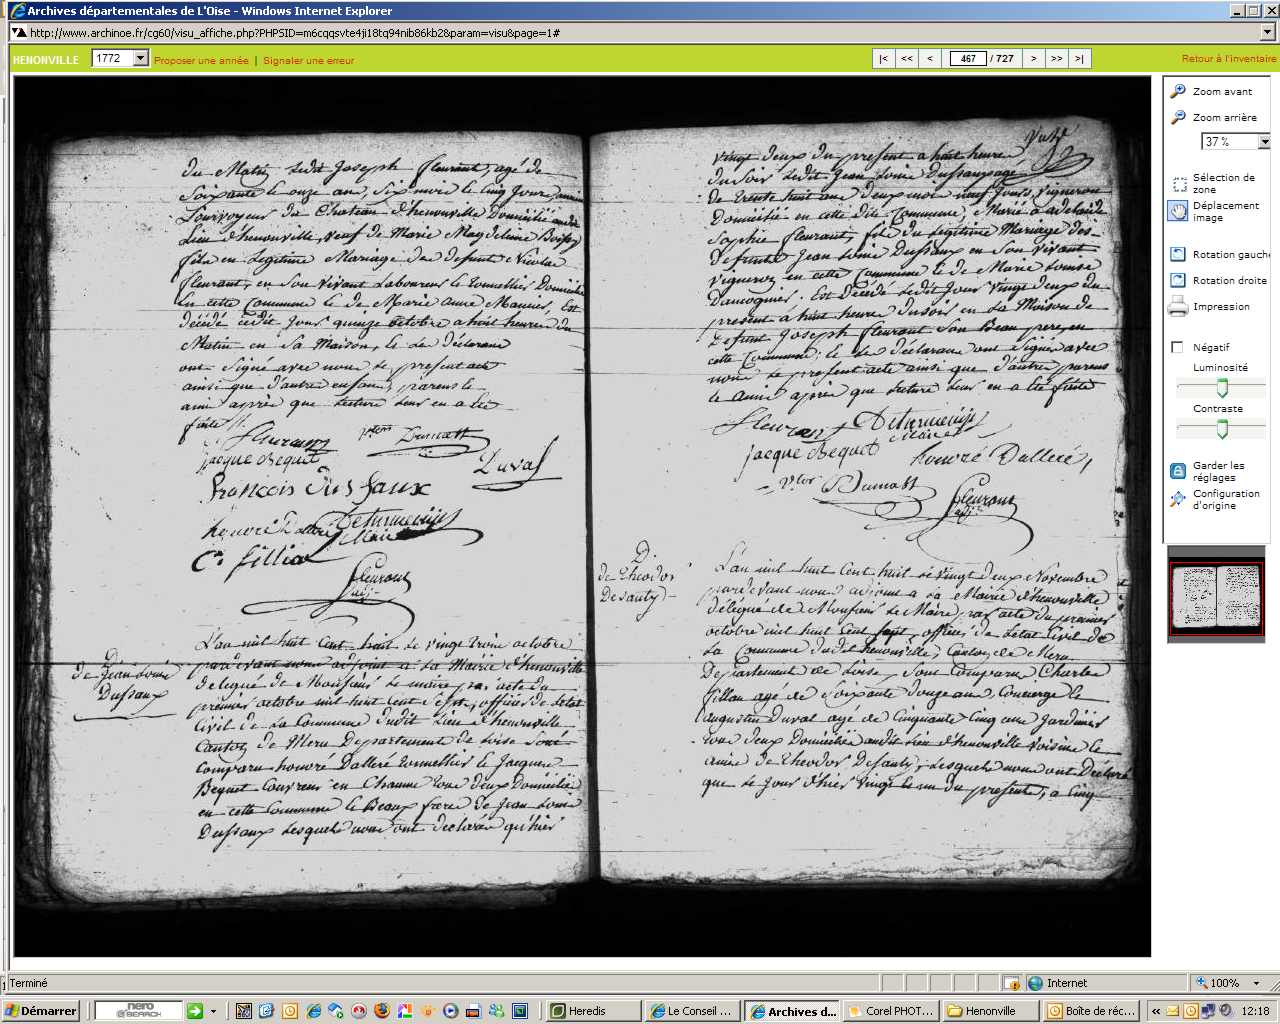 Archives départementales de L'Oise - Windows Internet Explorer
http://www.archinoe.fr/cg60/visu_affiche.php?PHPSID=m6cqqsvte4ji18tq94nib86kb2&param=visu&page=1#
HENONVILLE 1772 Proposer une année | Signaler une erreur |< << < 467 / 727 > >> >| Retour à l'inventaire
du Matin ledit Joseph fleurant, agé de
Soixante le onze ans, Six mois le Cinq Jours
Pourvoyeur du Chateau d'henonville Domicilié audit
Lieu d'henonville, veuf de Marie Magdeleine
fils en Legitime Mariage de defunt Nicolas
fleurant, en Son Vivant Laboureur le tonnellier Domicilié
en cette Commune le de Marie anne Est
décédé cedit Jour quinze octobre a huit heures du
Matin en Sa Maison, le Les déclarans
ont Signé avec nous le present acte
ainsi que d'autre enfans, parens le
ami après que lecture leur en a été
faite
fleurant Dumast
jacque Bequet Duval
François Dufaux
honoré Dallere Deturmenÿs Maire
C. fillion
fleurant adj.
D.
de Jean Louis
Dussaux
L'an mil huit Cent huit le vingt trois octobre
pardevant nous adjoint à La Mairie d'henonville
delegué de Monsieur le maire par acte du
premier octobre mil huit Cent Sept, officier de letat
Civil de La Commune dudit Lieu d'henonville
Canton de Meru Departement de Loise Sont
Comparu honoré Dalleré tonnellier le Jacques
Bequet Couvreur en Chaume tous deux Domiciliés
en cette Commune le Beaux frere de Jean Louis
Dussaux Lesquels nous ont declarés qu'hier
vingt deux du present a huit heures
du Soir ledit Jean Louis Dussaux agé
de trente huit ans deux mois neuf Jours Vigneron
Domicilié en cette dite Commune, Marié a adelaide
Sophie fleurant, fils du Legitime Mariage des
defunts Jean Louis Dussaux en Son Vivant
Vigneron en cette Commune le de Marie Louise
Est Decédé ledit Jour vingt deux du
present a huit heures du Soir en La Maison de
defunt Joseph fleurant Son Beau pere, en
cette Commune; le Les déclarans ont Signés avec
nous le present acte ainsi que d'autre parens
le amis après que lecture leur en a été faite
Fleurant Deturmenÿs Maire
jacque Bequet honoré Dalleré,
Dumast fleurant adj.
D.
de Theodor
Desauty
L'an mil huit Cent huit le vingt deux Novembre
pardevant nous adjoint a La Mairie d'henonville
délégué de Monsieur le Maire par acte du premier
octobre mil huit Cent Sept, officier de letat Civil de
La Commune dudit henonville, Canton de Meru
Departement de Loise, Sont Comparu Charles
fillion agé de Soixante douze ans Concierge le
augustin Duval agé de Cinquante Cinq ans Jardinier
tous deux Domiciliés audit Lieu d'henonville Voisins le
amis de Theodor Desauty, Lesquels nous ont Déclaré
que le Jour d'hier vingt le un du present, a Cinq
Zoom avant
Zoom arrière
37 %
Sélection de
zone
Déplacement
image
Rotation gauche
Rotation droite
Impression
Négatif
Luminosité
Contraste
Garder les
réglages
Configuration
d'origine
Terminé Internet 100%
Démarrer nero SEARCH Heredis Le Conseil ... Archives d... Corel PHOT... Henonville Boîte de réc... « 12:18